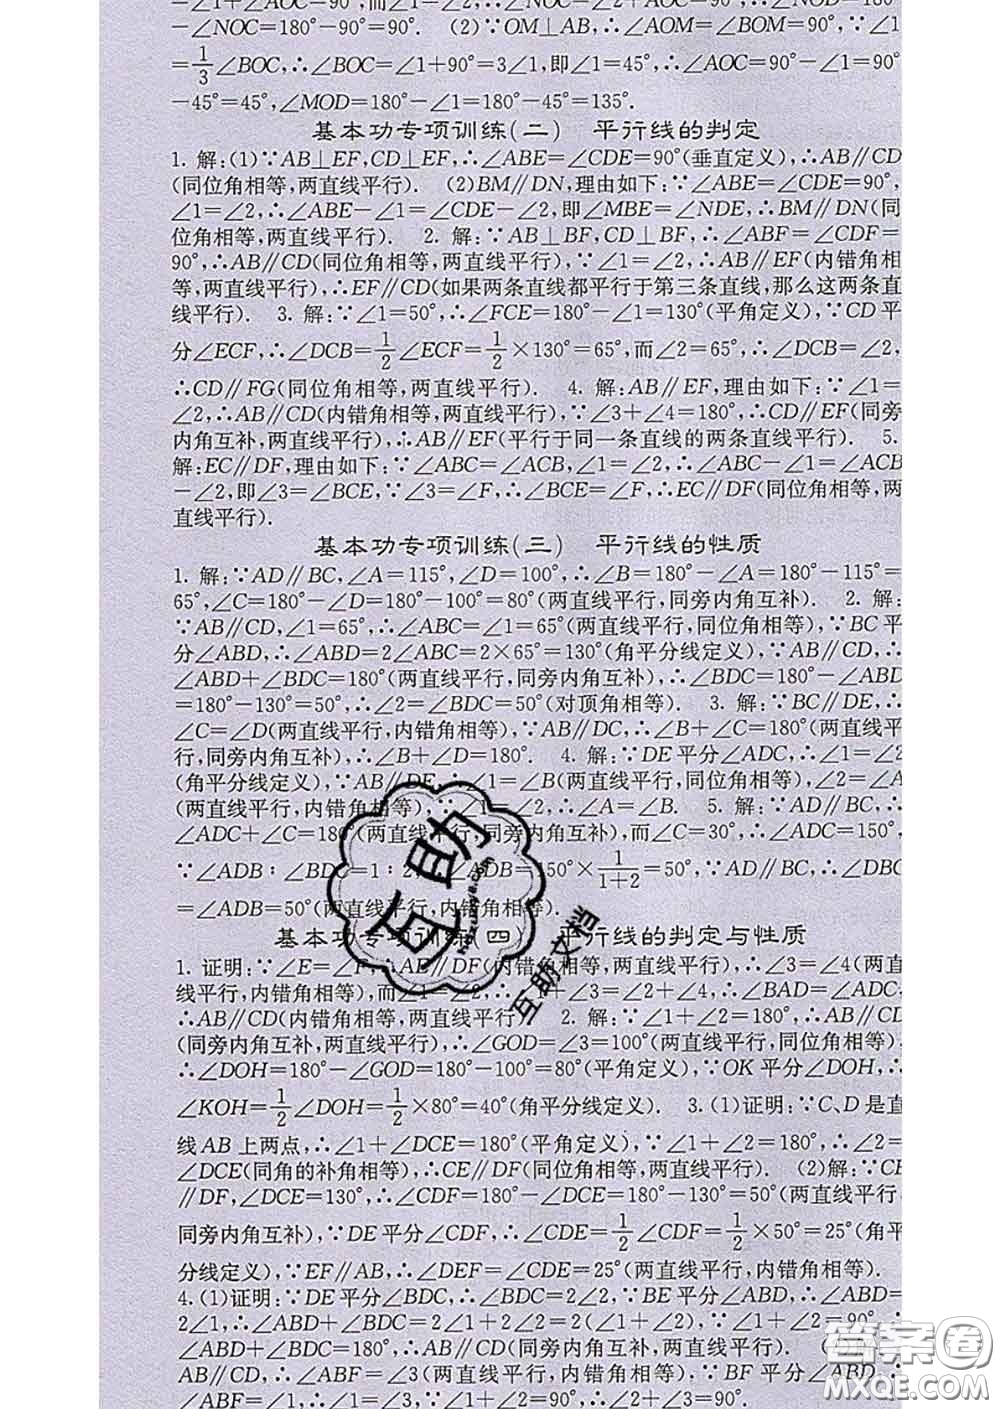 ∠1+∠AOC=90°,而∠1=∠2,∴∠NOC=∠2+∠AOC=90°,∴∠NOD=180°
-∠NOC=180°-90°=90°. (2)∵OM⊥AB,∴∠AOM=∠BOM=90°,∵∠1
=1/3∠BOC,∴∠BOC=∠1+90°=3∠1,即∠1=45°,∴∠AOC=90°-∠1=90°
-45°=45°,∠MOD=180°-∠1=180°-45°=135°.
基本功专项训练(二) 平行线的判定
1. 解:(1)∵AB⊥EF,CD⊥EF,∴∠ABE=∠CDE=90°(垂直定义),∴AB∥CD
(同位角相等,两直线平行). (2)BM∥DN,理由如下:∵∠ABE=∠CDE=90°,
∠1=∠2,∴∠ABE-∠1=∠CDE-∠2,即∠MBE=∠NDE,∴BM∥DN(同
位角相等,两直线平行). 2. 解:∵AB⊥BF,CD⊥BF,∴∠ABF=∠CDF=
90°,∴AB∥CD(同位角相等,两直线平行),∵∠1=∠2,∴AB∥EF(内错角相
等,两直线平行),∴EF∥CD(如果两条直线都平行于第三条直线,那么这两条直
线平行). 3. 解:∵∠1=50°,∴∠FCE=180°-∠1=130°(平角定义),∵CD平
分∠ECF,∴∠DCB=1/2∠ECF=1/2×130°=65°,而∠2=65°,∴∠DCB=∠2,
∴CD∥FG(同位角相等,两直线平行). 4. 解:AB∥EF,理由如下:∵∠1=
∠2,∴AB∥CD(内错角相等,两直线平行),∵∠3+∠4=180°,∴CD∥EF(同旁
内角互补,两直线平行),∴AB∥EF(平行于同一条直线的两条直线平行). 5.
解:EC∥DF,理由如下:∵∠ABC=∠ACB,∠1=∠2,∴∠ABC-∠1=∠ACB
-∠2,即∠3=∠BCE,∵∠3=∠F,∴∠BCE=∠F,∴EC∥DF(同位角相等,两
直线平行).
基本功专项训练(三) 平行线的性质
1. 解:∵AD∥BC,∠A=115°,∠D=100°,∴∠B=180°-∠A=180°-115°=
65°,∠C=180°-∠D=180°-100°=80°(两直线平行,同旁内角互补). 2. 解:
∵AB∥CD,∠1=65°,∴∠ABC=∠1=65°(两直线平行,同位角相等),∵BC平
分∠ABD,∴∠ABD=2∠ABC=2×65°=130°(角平分线定义),∵AB∥CD,∴
∠ABD+∠BDC=180°(两直线平行,同旁内角互补),∴∠BDC=180°-∠ABD
=180°-130°=50°,∴∠2=∠BDC=50°(对顶角相等). 3. 解:∵BC∥DE,∴
∠C=∠D(两直线平行,内错角相等),∵AB∥DC,∴∠B+∠C=180°(两直线平
行,同旁内角互补),∴∠B+∠D=180°. 4. 解:∵DE平分∠ADC,∴∠1=∠2
(角平分线定义),∵AB∥DE,∴∠1=∠B(两直线平行,同位角相等),∠2=∠A
(两直线平行,内错角相等),∵∠1=∠2,∴∠A=∠B. 5. 解:∵AD∥BC,∴
∠ADC+∠C=180°(两直线平行,同旁内角互补),而∠C=30°,∴∠ADC=150°,
∵∠ADB∶∠BDC=1∶2,∴∠ADB=150°×1/(1+2)=50°,∵AD∥BC,∴∠DBC
=∠ADB=50°(两直线平行,内错角相等).
基本功专项训练(四) 平行线的判定与性质
1. 证明:∵∠E=∠F,∴AE∥DF(内错角相等,两直线平行),∴∠3=∠4(两直
线平行,内错角相等),而∠1=∠2,∴∠1+∠3=∠2+∠4,∴∠BAD=∠ADC,
∴AB∥CD(内错角相等,两直线平行). 2. 解:∵∠1+∠2=180°,∴AB∥CD
(同旁内角互补,两直线平行),∴∠GOD=∠3=100°(两直线平行,同位角相等),
∴∠DOH=180°-∠GOD=180°-100°=80°(平角定义),∵OK平分∠DOH,∴
∠KOH=1/2∠DOH=1/2×80°=40°(角平分线定义). 3.(1)证明:∵C、D是直
线AB上两点,∴∠1+∠DCE=180°(平角定义),∵∠1+∠2=180°,∴∠2=
∠DCE(同角的补角相等),∴CE∥DF(同位角相等,两直线平行). (2)解:∵CE
∥DF,∠DCE=130°,∴∠CDF=180°-∠DCE=180°-130°=50°(两直线平行,
同旁内角互补),∵DE平分∠CDF,∴∠CDE=1/2∠CDF=1/2×50°=25°(角平
分线定义),∵EF∥AB,∴∠DEF=∠CDE=25°(两直线平行,内错角相等).
4.(1)证明:∵DE平分∠BDC,∴∠BDC=2∠2,∵BE平分∠ABD,∴∠ABD=
2∠1,∴∠ABD+∠BDC=2∠1+2∠2=2(∠1+∠2),∵∠1+∠2=90°,∴
∠ABD+∠BDC=180°,∴AB∥CD(同旁内角互补,两直线平行).
AB∥CD,∴∠ABF=∠3(两直线平行,内错角相等),∵BF平分∠ABD,∴
∠ABF=∠1,∴∠3=∠1,∵∠1+∠2=90°,∴∠2+∠3=90°.
互助
互助文档
答案圈
MXQE.COM